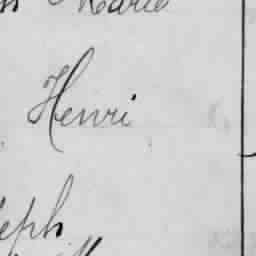 Marie
Henri
eph